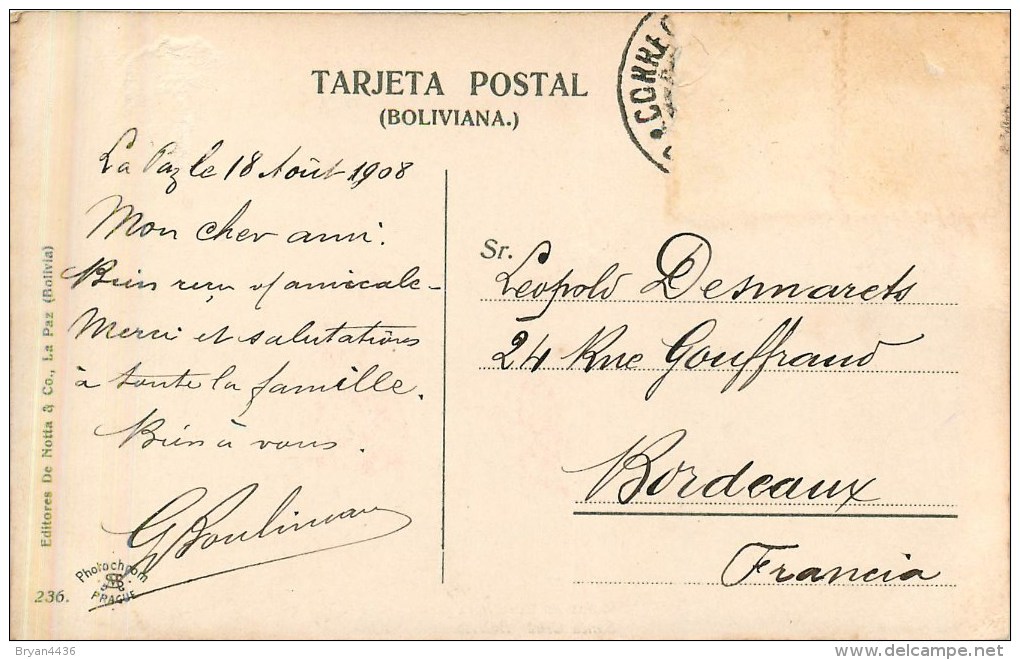 TARJETA POSTAL
(BOLIVIANA.)
CORREO
La Paz le 18 Août 1908
Mon cher ami.
Bien reçu v/ amicale -
Merci et salutations
à toute la famille.
Bien à vous.
G Boulineau
Sr.
Leopold Desmarets
24 Rue Gouffrand
Bordeaux
Francia
Editores De Notta & Co., La Paz (Bolivia)
236.
Photochrom
PRAGUE
Bryan4436
delcampe.net